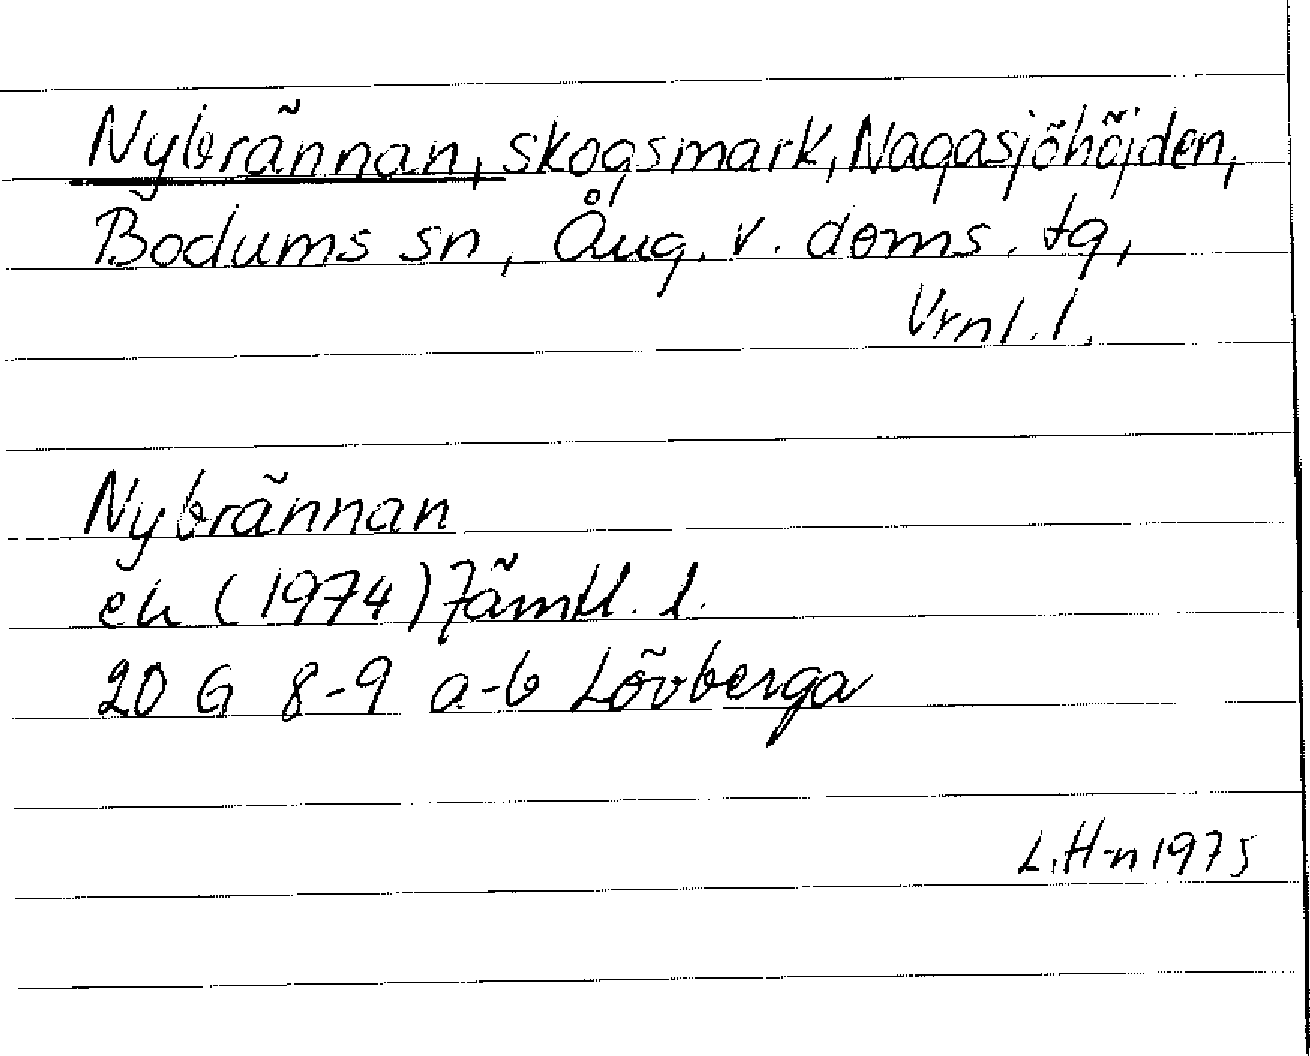 Nybrännan, skogsmark, Nagasjöhöjden,
Bodums sn, Ång. v. doms. tg,
Vrnl. l.
Nybrännan
ek (1974) Jämtl. l.
20 G 8-9 a-b Lövberga
L. H-n 1975